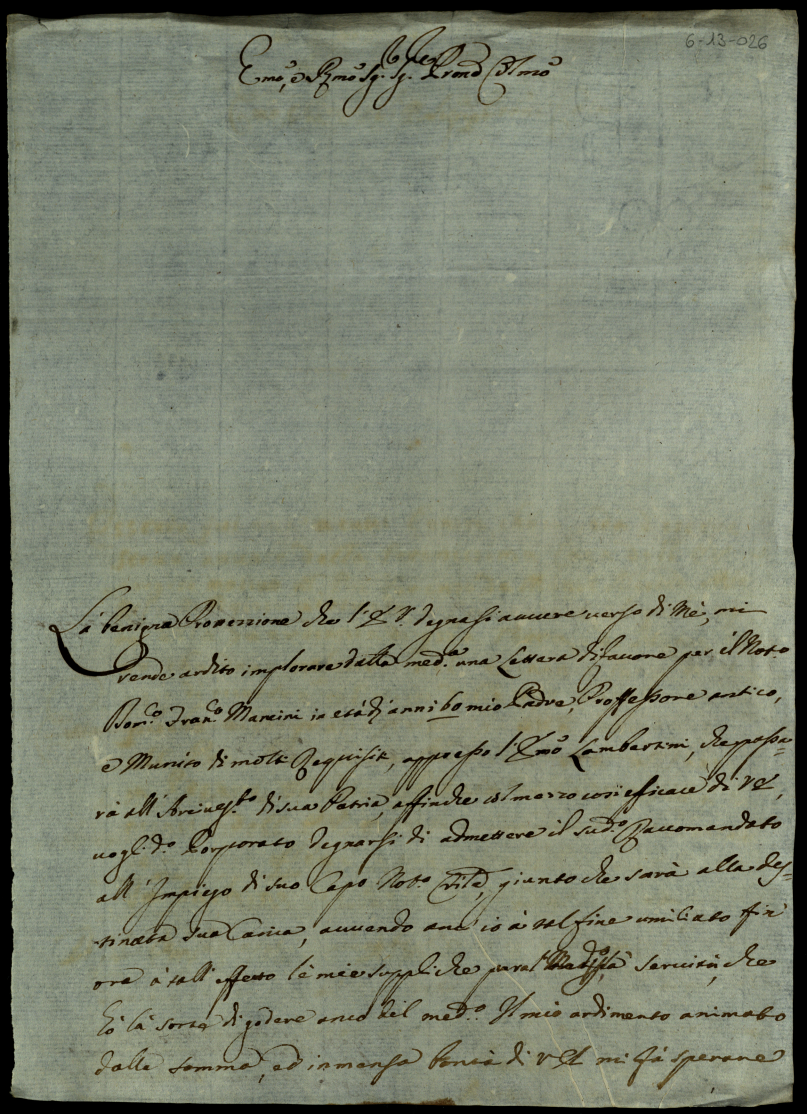 6-13-026
Emo, e Rmo Sig. Sig. Pron Colmo
La benigna Protezzione che l'E. V. degnasi avvere verso di Mè, mi
rende ardito implorare dalla med.a una Lettera di favore per il Not.o
Dom.co Fran.co Mancini in età di anni 60 mio Padre, Proffessore antico,
e Munito di molti Requisiti, appresso l'Emo Lambertini, che passa-
rà all' Arcives.to di sua Patria, affinche col mezzo cosi efficace di V E,
vogl. d.o Porporato degnarsi di admettere il sud.o Raccomandato
all' Impiego di suo Capo Not.o Civile, giunto che sarà alla des-
tinata sua Carica, avvendo anc io à tal fine umiliato fin
ora à tall' effetto le mie suppliche per la servitù, che
hò la sorte di godere anco del med.o. Il mio ardimento animato
dalla somma, ed immensa bontà di V E mi fà sperare